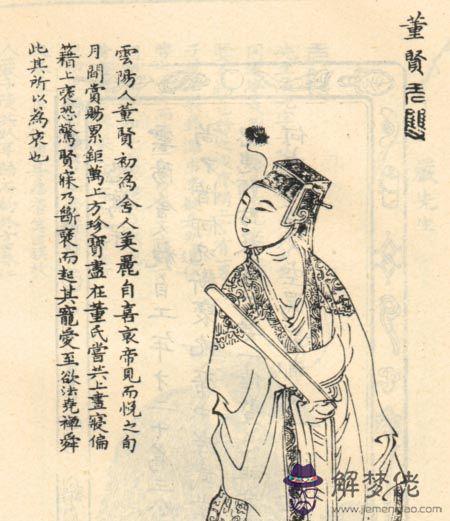 董賢无雙
雲陽人董賢初為舍人美麗自喜哀帝見而悅之旬
月間賞賜累鉅萬上方珍寶盡在董氏嘗共上晝寢偏
籍上褎恐驚賢寐乃斷褎而起其寵愛至欲法堯禪舜
此其所以為哀也
解梦佬
www.jiemenglao.com